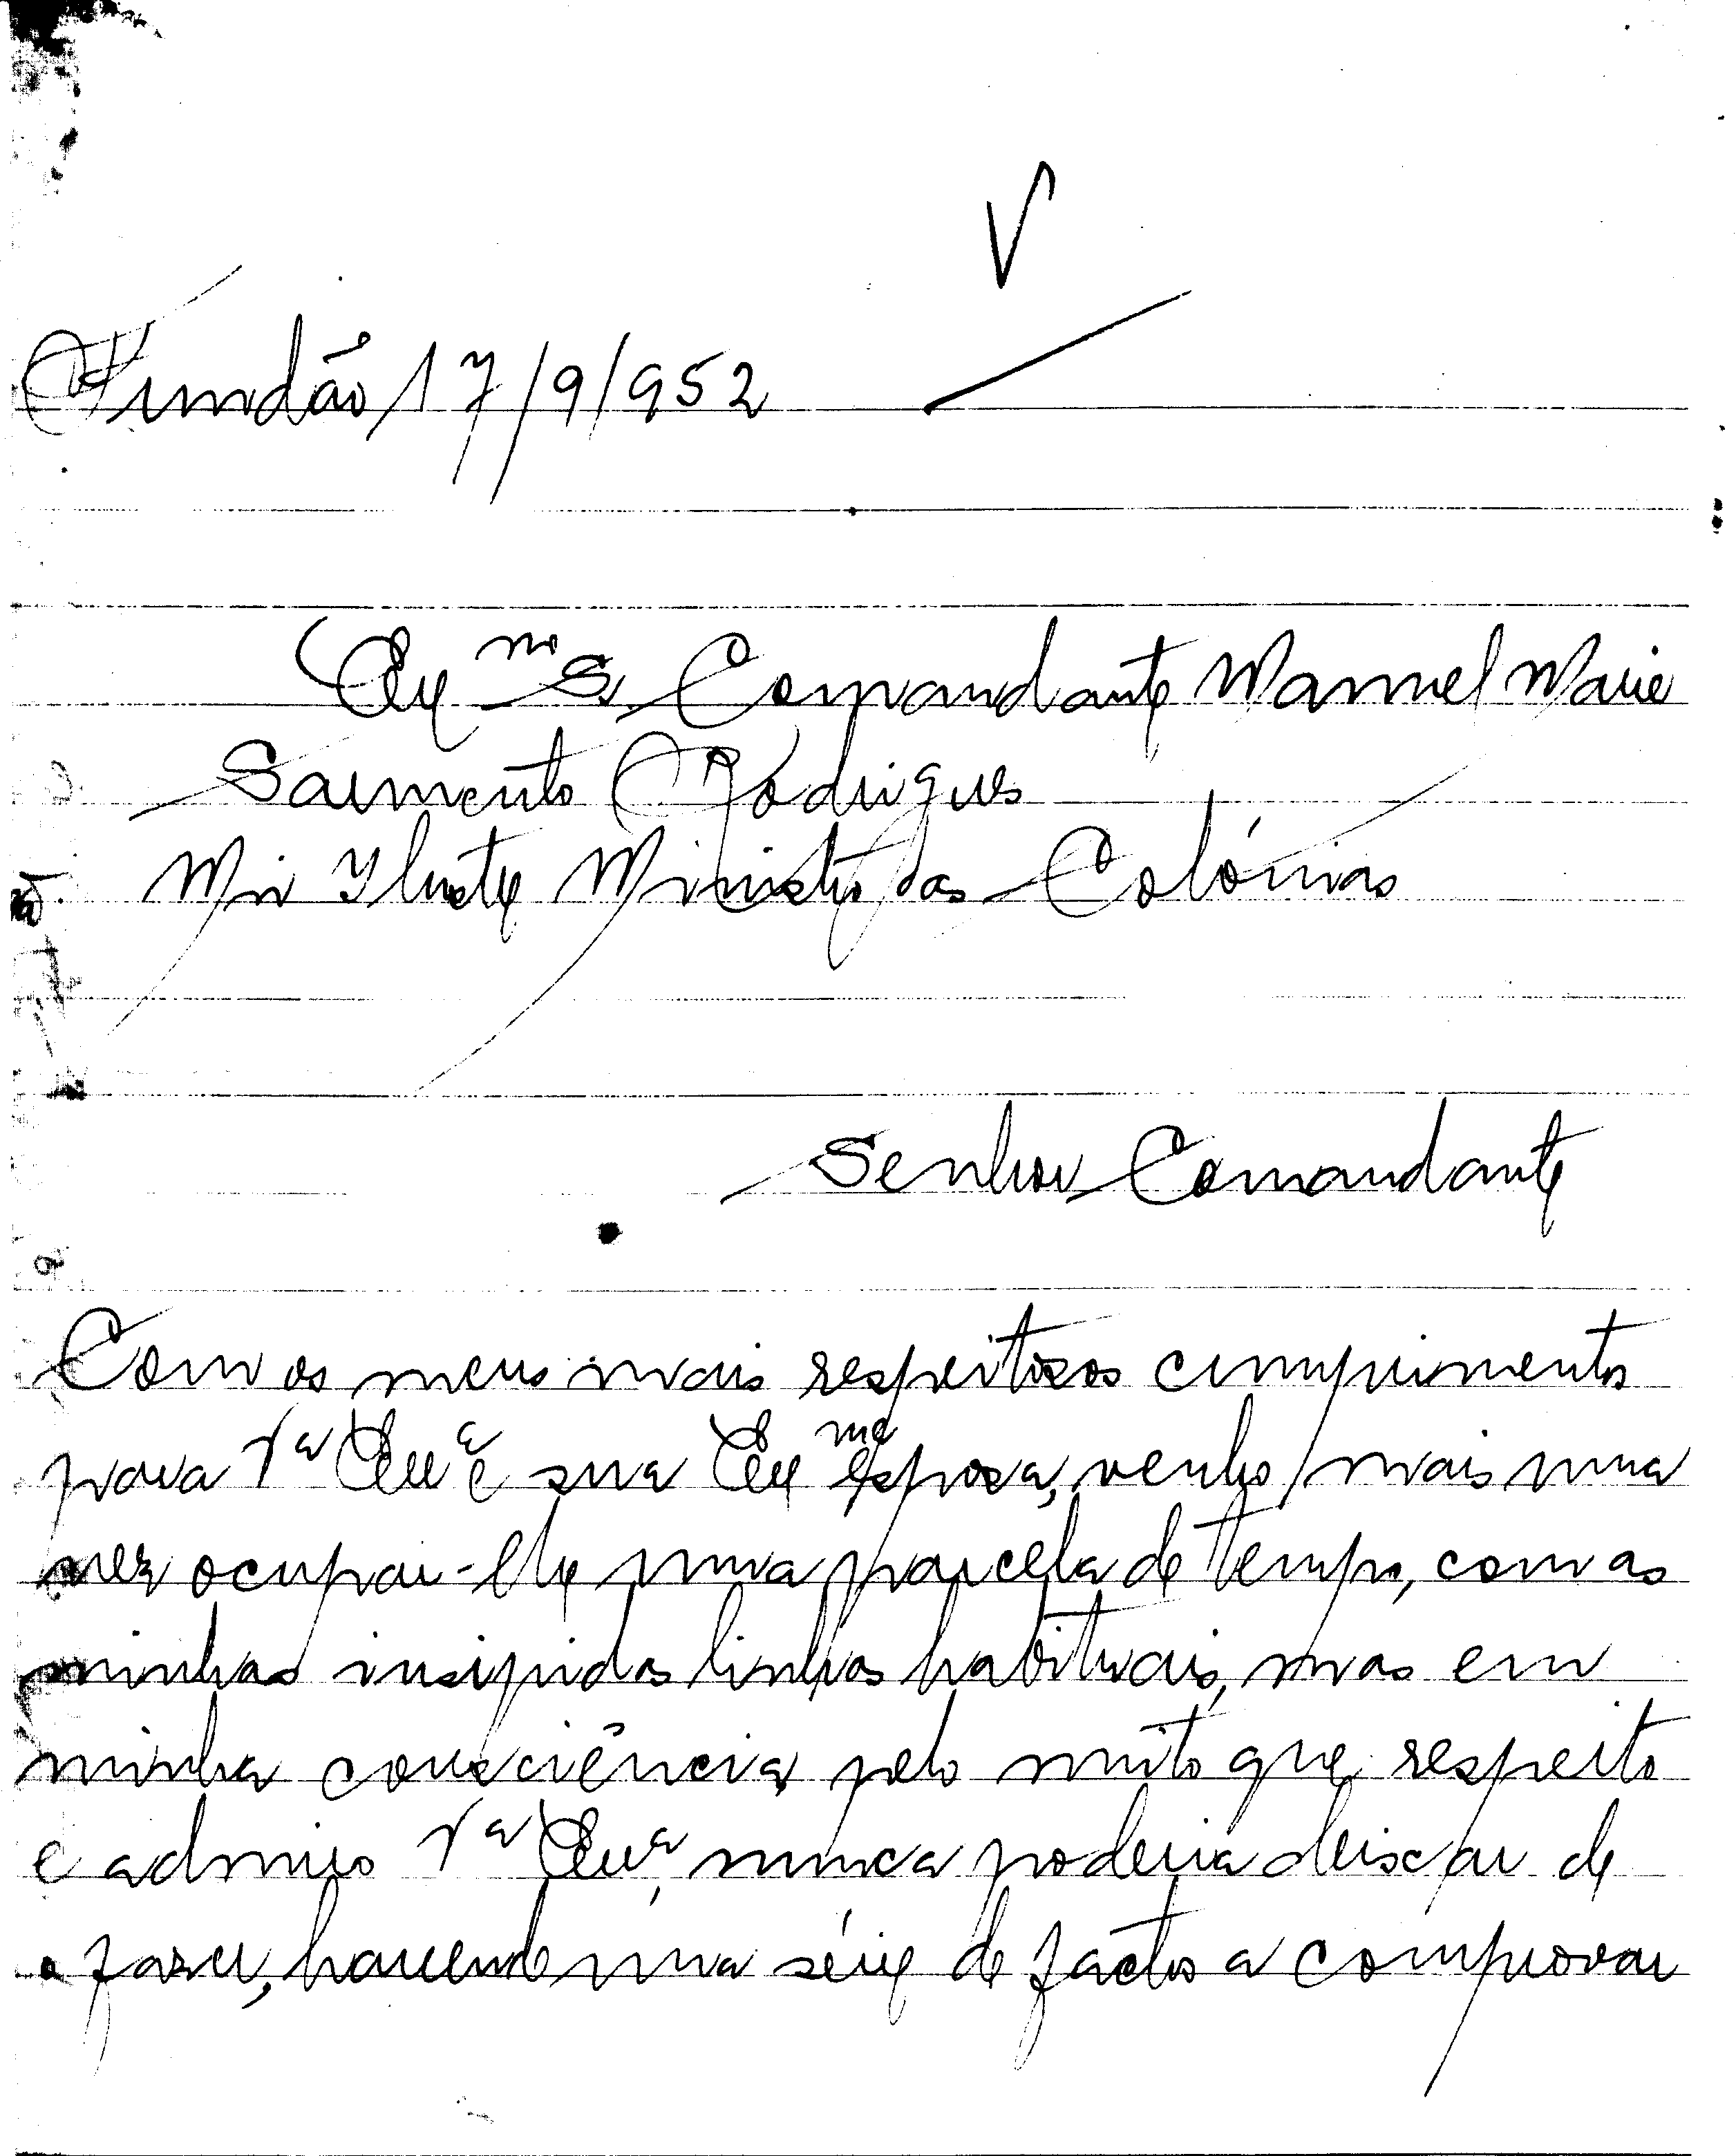 V
Fundão, 17/9/952
Exmo Sr. Comandante Manuel Maria
Sarmento Rodrigues
Mui Ilustre Ministro das Colónias
Senhor Comandante
Com os meus mais respeitosos cumprimentos
para Va Exa e sua Exma esposa, venho mais uma
vez ocupar-lhe uma parcela de tempo, com as
minhas insipidas linhas habituais, mas em
minha consciência, pelo muito que respeito
e admiro Va Exa, nunca poderia deixar de
o fazer, havendo uma série de factos a comprovar